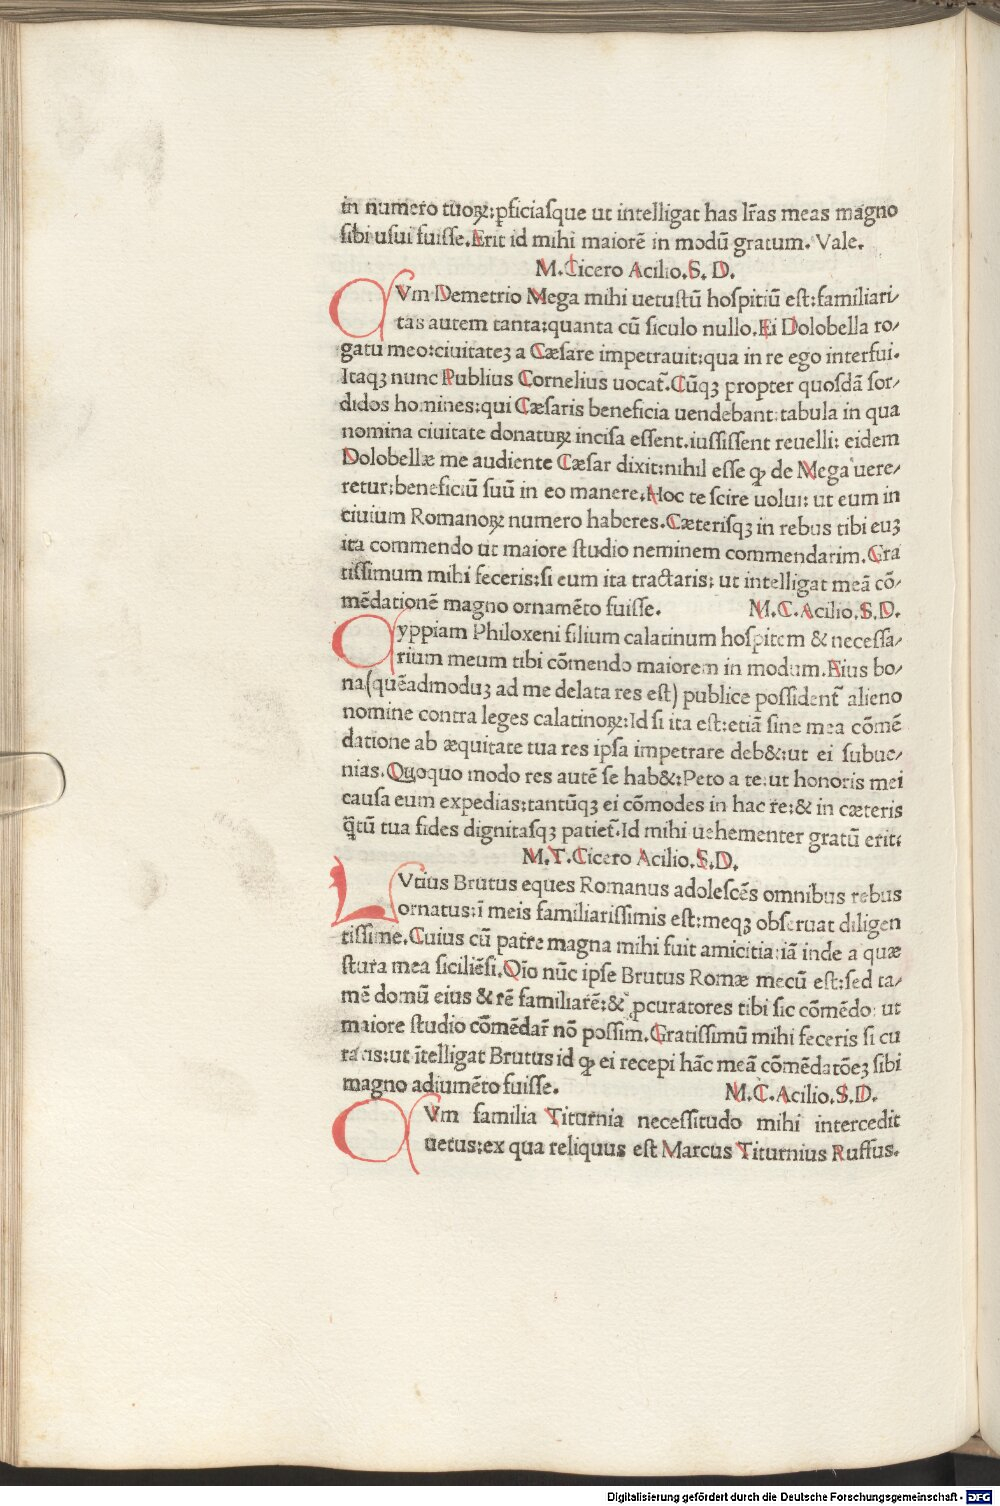 in numero tuoꝝ: ꝑficiasque ut intelligat has lr̃as meas magno
sibi usui fuisse. Erit id mihi maiorẽ in modũ gratum. Vale.
M. Cicero Acilio. S. D.
CVm Demetrio Mega mihi uetustũ hospitiũ est: familiari/
tas autem tanta: quanta cũ siculo nullo. Ei Dolobella ro/
gatu meo: ciuitateꝫ a Cæsare impetrauit: qua in re ego interfui.
Itaqꝫ nunc Publius Cornelius uocat̃. Cũqꝫ propter quosdã sor/
didos homines: qui Cæsaris beneficia uendebant: tabula in qua
nomina ciuitate donatuꝝ incisa essent. iussissent reuelli: eidem
Dolobellæ me audiente Cæsar dixit: nihil esse ꝙ de Mega uere/
retur: beneficiũ suũ in eo manere. Hoc te scire uolui: ut eum in
ciuium Romanoꝝ numero haberes. Cæterisqꝫ in rebus tibi euꝫ
ita commendo ut maiore studio neminem commendarim. Gra
tissimum mihi feceris: si eum ita tractaris: ut intelligat meã cõ/
mẽdationẽ magno ornamẽto fuisse. M. C. Acilio. S. D.
Gyppiam Philoxeni filium calatinum hospitem & necessa/
rium meum tibi cõmendo maiorem in modum. Eius bo/
na (quẽadmoduꝫ ad me delata res est) publice possident̃ alieno
nomine contra leges calatinoꝝ: Id si ita est: etiã sine mea cõmẽ
datione ab æquitate tua res ipsa impetrare deb&: ut ei subue/
nias. Quoquo modo res autẽ se hab&: Peto a te. ut honoris mei
causa eum expedias: tantũqꝫ ei cõmodes in hac re: & in cæteris
q̃tũ tua fides dignitasqꝫ patiet̃. Id mihi uehementer gratũ erit:
M. T. Cicero Acilio. S. D.
LVtius Brutus eques Romanus adolescẽs omnibus rebus
ornatus: ĩ meis familiarissimis est: meqꝫ obseruat diligen
tissime. Cuius cũ patre magna mihi fuit amicitia: iã inde a quæ
stura mea siciliẽsi. Oĩo nũc ipse Brutus Romæ mecũ est: sed ta/
mẽ domũ eius & rẽ familiarẽ: & ꝓcuratores tibi sic cõmẽdo: ut
maiore studio cõmẽdar̃ nõ possim. Gratissimũ mihi feceris si cu
raris: ut ĩtelligat Brutus id ꝙ ei recepi hãc meã cõmẽdatõeꝫ sibi
magno adiumẽto fuisse. M. C. Acilio. S. D.
CVm familia Titurnia necessitudo mihi intercedit
uetus: ex qua reliquus est Marcus Titurnius Ruffus.
Digitalisierung gefördert durch die Deutsche Forschungsgemeinschaft - DFG